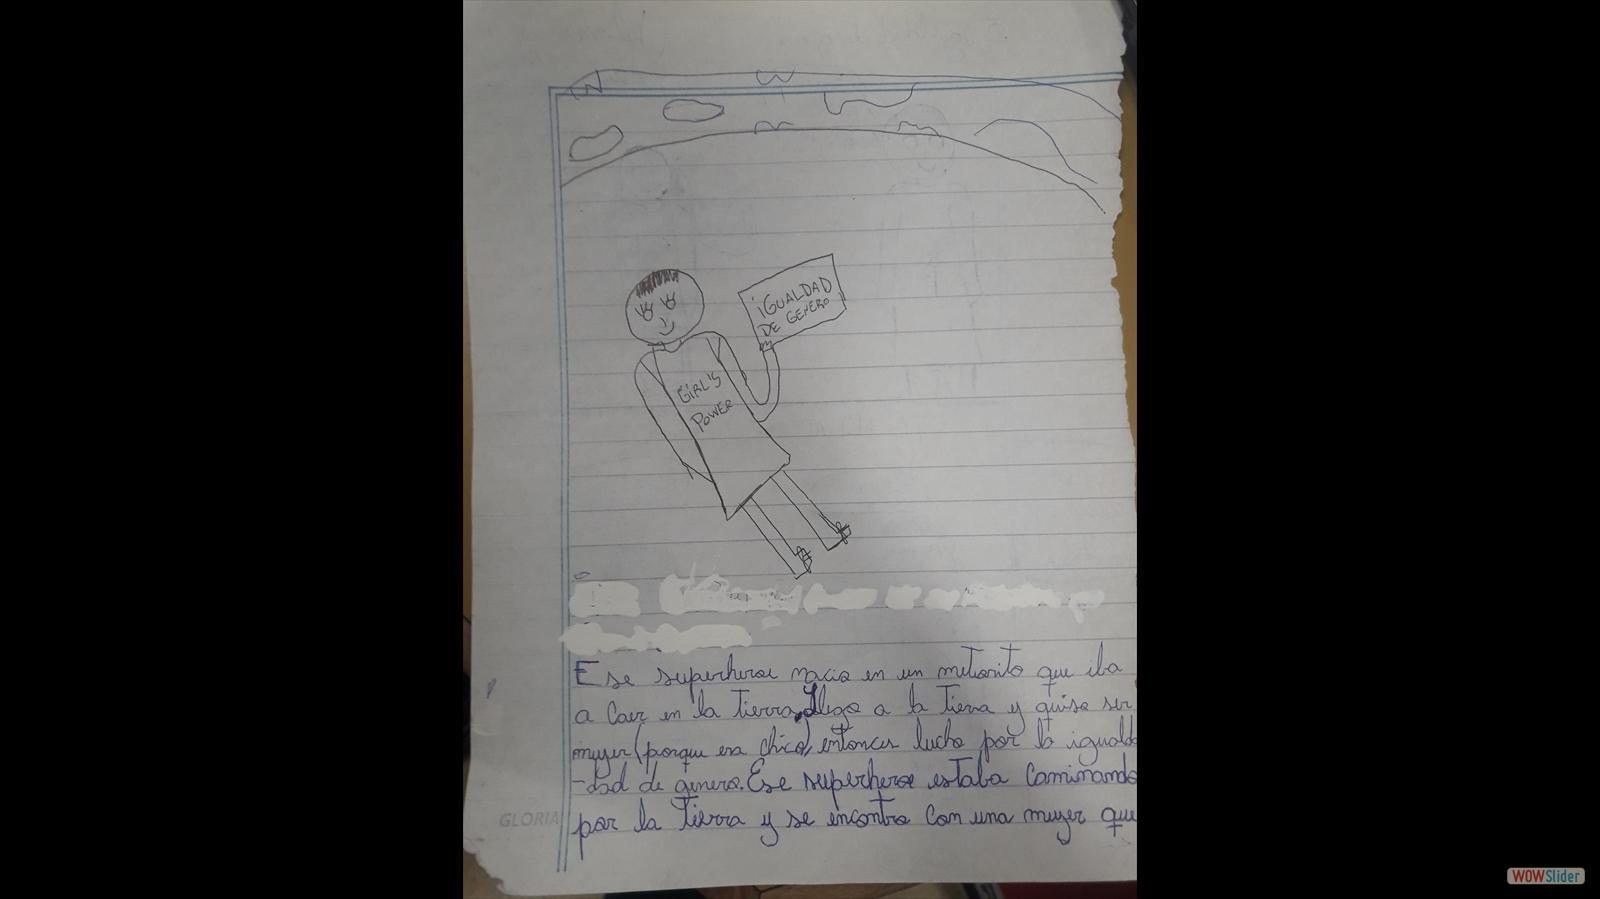 ¡GUALDAD
DE GENERO
GiRL'S
POWER
Ese superheroe nacio en un metiorito que iba
a caer en la tierra, llego a la tierra y quiso ser
mujer (porque era chico) entonces lucho por la iguald
-dad de genero. Ese superheroe estaba caminando
por la tierra y se encontro con una mujer que
GLORIA
WOWSlider